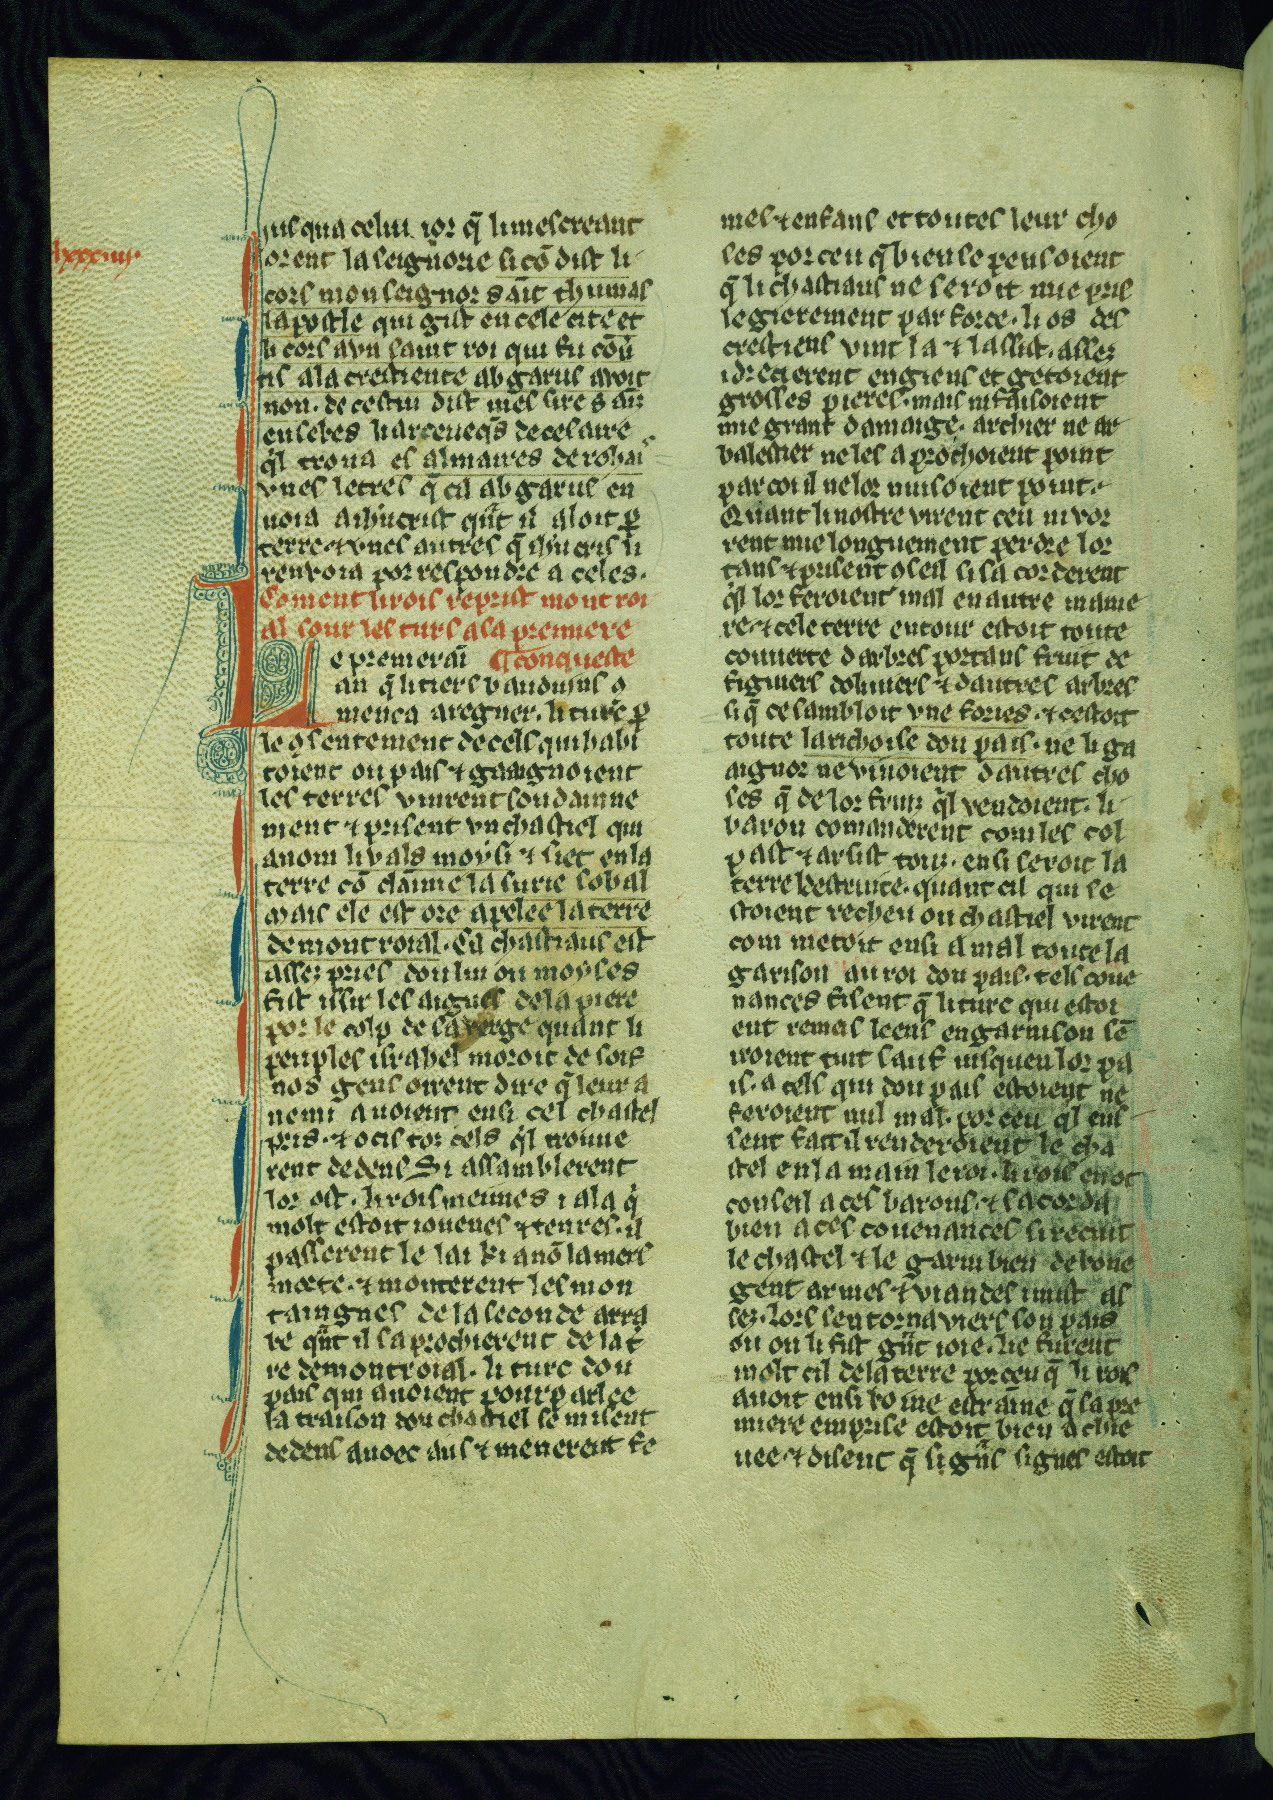 lxxxiiii.
jusqua celui ior q̄ li mescreant
orent la seignorie si cō dist li
cors monseignor saīt thumas
lapostle qui gist en cele cite et
li cors dun saint roi qui fu cōū
tis a la crestiente abgarus avoit
non. de cestui dist mes sires saīt
eusebes li arceveqs de cesaire
ql trova es almaires de rohais
unes letres q̄ cil abgarus en
voia a ihūcrist qnt il aloit p
terre. ⁊ unes autres q̄ ihūcris li
renvoia por respondre a celes.
Coment li rois reprist mont roi
al sour les turs a la premiere
e premeraī ¶ conqueste
an q̄ li tiers bauduins 9
menca a regner. li turc p
le 9sentement de cels qui habi
toient ou pais ⁊ gaaignoient
les terres vinrent soudainne
ment ⁊ prisent un chastiel qui
a nom li vals moysi ⁊ siet en la
terre cō claīme la surie sobal
Mais ele est ore apelee la terre
de mont roial. Cil chastiaus est
assez pries dou liu ou moyses
fist issir les aigues de la piere
por le colp de sa verge quant li
peuples israhel moroit de soif
nos gens oirent dire q̄ leur a
nemi avoient ensi cel chastel
pris. ⁊ ocis tor cels ql trouve
rent dedens Si assamblerent
lor ost. li rois meimes i ala q
molt estoit iovenes ⁊ tenres. il
passerent le lai ki a nō la mers
morte. ⁊ monterent les mon
taingnes de la seconde arra
be qnt il saprochierent de la t
re de montroial. li turc dou
pais qui avoient pourparlee
la traison dou chastiel se misent
dedens avoec aus ⁊ menerent fe
mes ⁊ enfans et toutes leur cho
ses por ceu q̄ bien se pensoient
q̄ li chastiaus ne seroit mie pris
legierement par force. li os des
crestiens vint la ⁊ lassist. assez
i drecierent engiens et getoient
grosses pieres. mais ni faisoient
mie grant damaige. archier ne ar
balestier ne les aprochoient point
par coi il ne lor nuisoient point.
Quant li nostre virent ceu ni vor
rent mie longuement perdre lor
tans ⁊ prisent 9seil si sacorderent
ql lor feroient mal en autre manie
re. ⁊ cele terre entour estoit toute
couverte darbres portans fruit de
figuiers dolivers ⁊ dautres arbres
si q̄ ce sambloit une fories. ⁊ cestoit
toute la richoise dou pais. ne li ga
aignor ne vivoient dautres cho
ses q̄ de lor fruit ql vendoient. li
baron comanderent com les col
past ⁊ arsist tous. ensi seroit la
terre destruite. quant cil qui se
stoient recheu ou chastiel virent
com metoit ensi a mal toute la
garison au roi dou pais. tels cove
nances fisent q̄ li turc qui estoi
ent remes leens en garnison sē
iroient tuit sauf iusqueu lor pa
is. a cels qui dou pais estoient ne
feroient nul mal. por ceu ql eus
sent fait il renderoient le cha
stel en la main le roi. li rois en ot
conseil a ces barons. ⁊ sacorda
bien a ces covenances si recuit
le chastel ⁊ le garni bien de bone
gent armes ⁊ viandes i mist as
sez. lors sen torna viers son pais
ou on li fist gnt ioie. lie furent
molt cil de la terre por ceu q̄ li rois
avoit ensi bo ine estraīne q̄ la pre
miere emprise estoit bien achie
vee. ⁊ disent q̄ si gns signes estoit